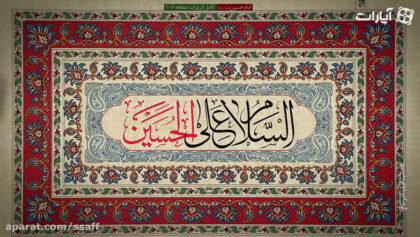 آپارات
السلام علی الحسین
aparat.com/ssaff